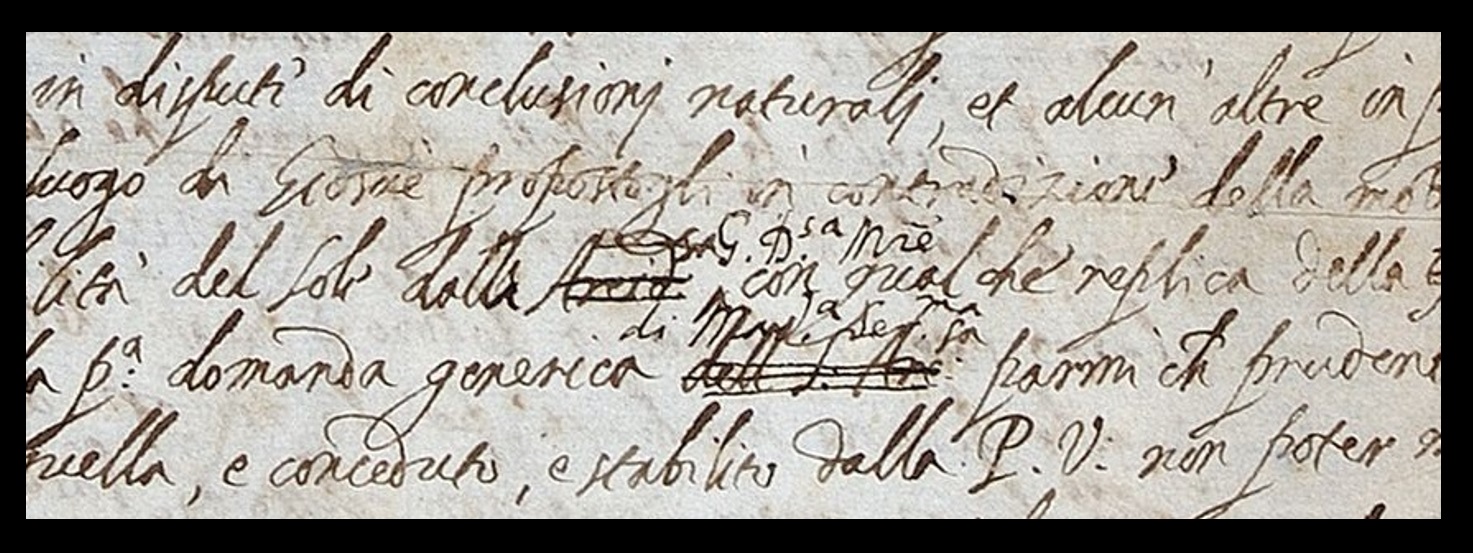 in dispute di conclusionj naturalj, et alcun' altre in p
luogo di Giosuè propostogli in contradizione della mob
ilità del Sole dalla G. D.sa Mre con qualche replica della
la p.a domanda generica di Mad.a Ser.ma parmi ch prudent
quella, e conceduto, e stabilito dalla P. V. non poter m